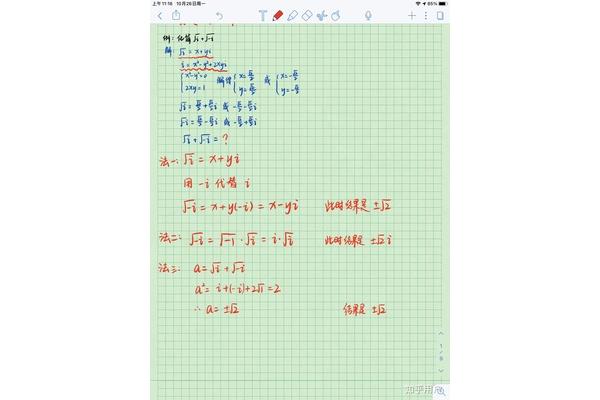 上午11:16 10月26日周一
85%
例: 化简√i+√-i
解: √i = x+yi
i = x²-y²+2xyi
{x²-y²=0 2xy=1 解得 {x=√2/2 y=√2/2 或 {x=-√2/2 y=-√2/2
√i = √2/2+√2/2i 或 -√2/2-√2/2i
√-i = √2/2-√2/2i 或 -√2/2+√2/2i
√i+√-i = ?
法一: √i = x+yi
用 -i 代替 i
√-i = x+y(-i) = x-yi 此时结果是 ±√2
法二: √-i = √-1·√i = i·√i 此时结果是 ±√2 i
法三: a=√i+√-i
a²= i+(-i)+2√1=2
∴ a=±√2 结果是 ±√2
知乎用户